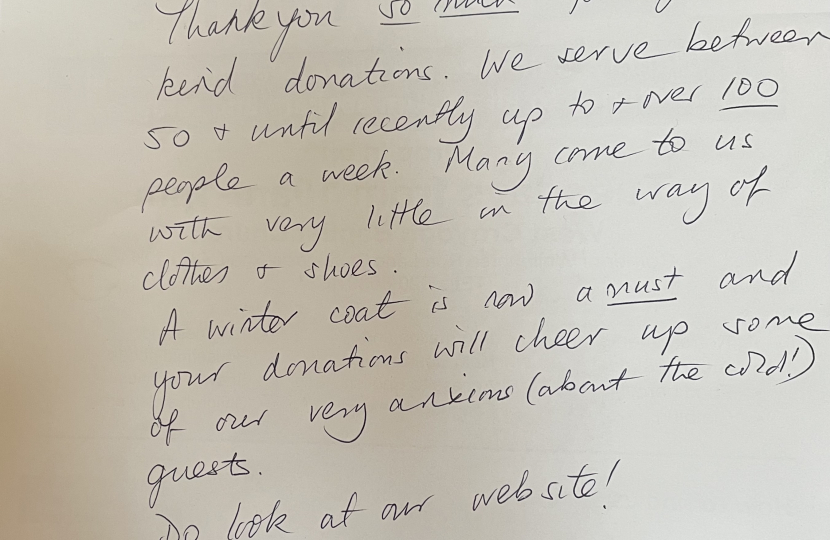 Thank you so much
kind donations. We serve between
50 + until recently up to + over 100
people a week. Many come to us
with very little in the way of
clothes + shoes.
A winter coat is now a must and
your donations will cheer up some
of our very anxious (about the cold!)
guests.
Do look at our website!